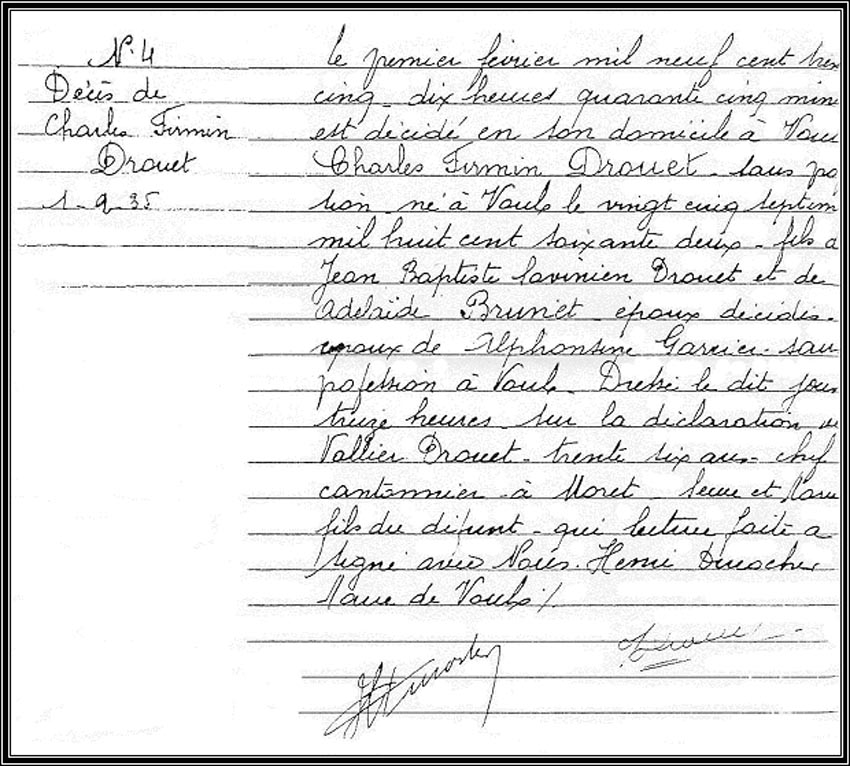 N. 4
Décès de
Charles Firmin
Drouet
1-2-35
Le premier février mil neuf cent tren
cinq - dix heures quarante cinq min
est décédé en son domicile à Voul
Charles Firmin Drouet - sans po
sion - né à Voulx le vingt cinq septem
mil huit cent soixante deux - fils d
Jean Baptiste Savinien Drouet et de
Adelaïde Brunet - époux décédés -
époux de Alphonsine Garnier - san
pofession à Voulx - Dressé le dit jour
treize heures - sur la déclaration de
Vallier Drouet - trente six ans - chef
cantonnier - à Moret - Seine et Marn
fils du défunt - qui lecture faite a
signé avec Nous - Henri Durocher
Maire de Voulx /.